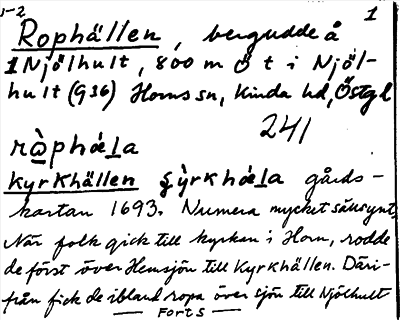 1-2 1
Rophällen, bergudde å
1 Njölhult, 800 m Ö t i Njöl-
hult (936) Horns sn, Kinda hd, Östgl
241
ràphǽla
Kyrkhällen çy̌rkhǽla gårds-
kartan 1693. Numera mycket sällsynt.
När folk gick till kyrkan i Horn, rodde
de först över Hemsjön till Kyrkhällen. Däri-
från fick de ibland ropa över sjön till Njölhult
— Forts —